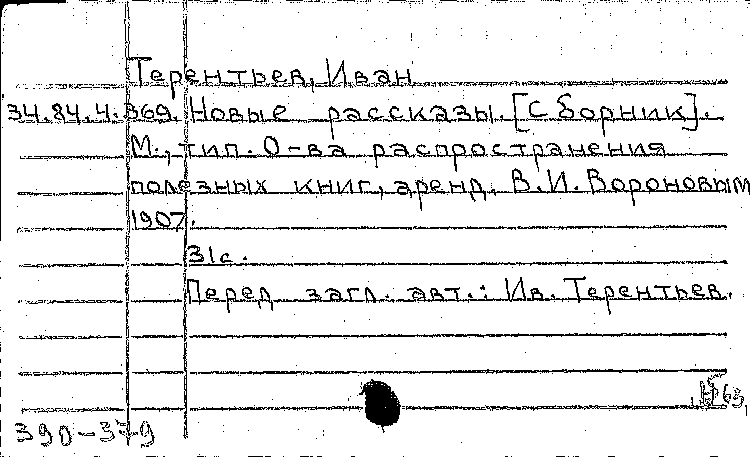 Терентьев, Иван
34.84.4.369. Новые рассказы. [Сборник].
М., тип. О-ва распространения
полезных книг, аренд. В.И. Вороновым
1907.
31с.
Перед загл. авт.: Ив. Терентьев.
390-379